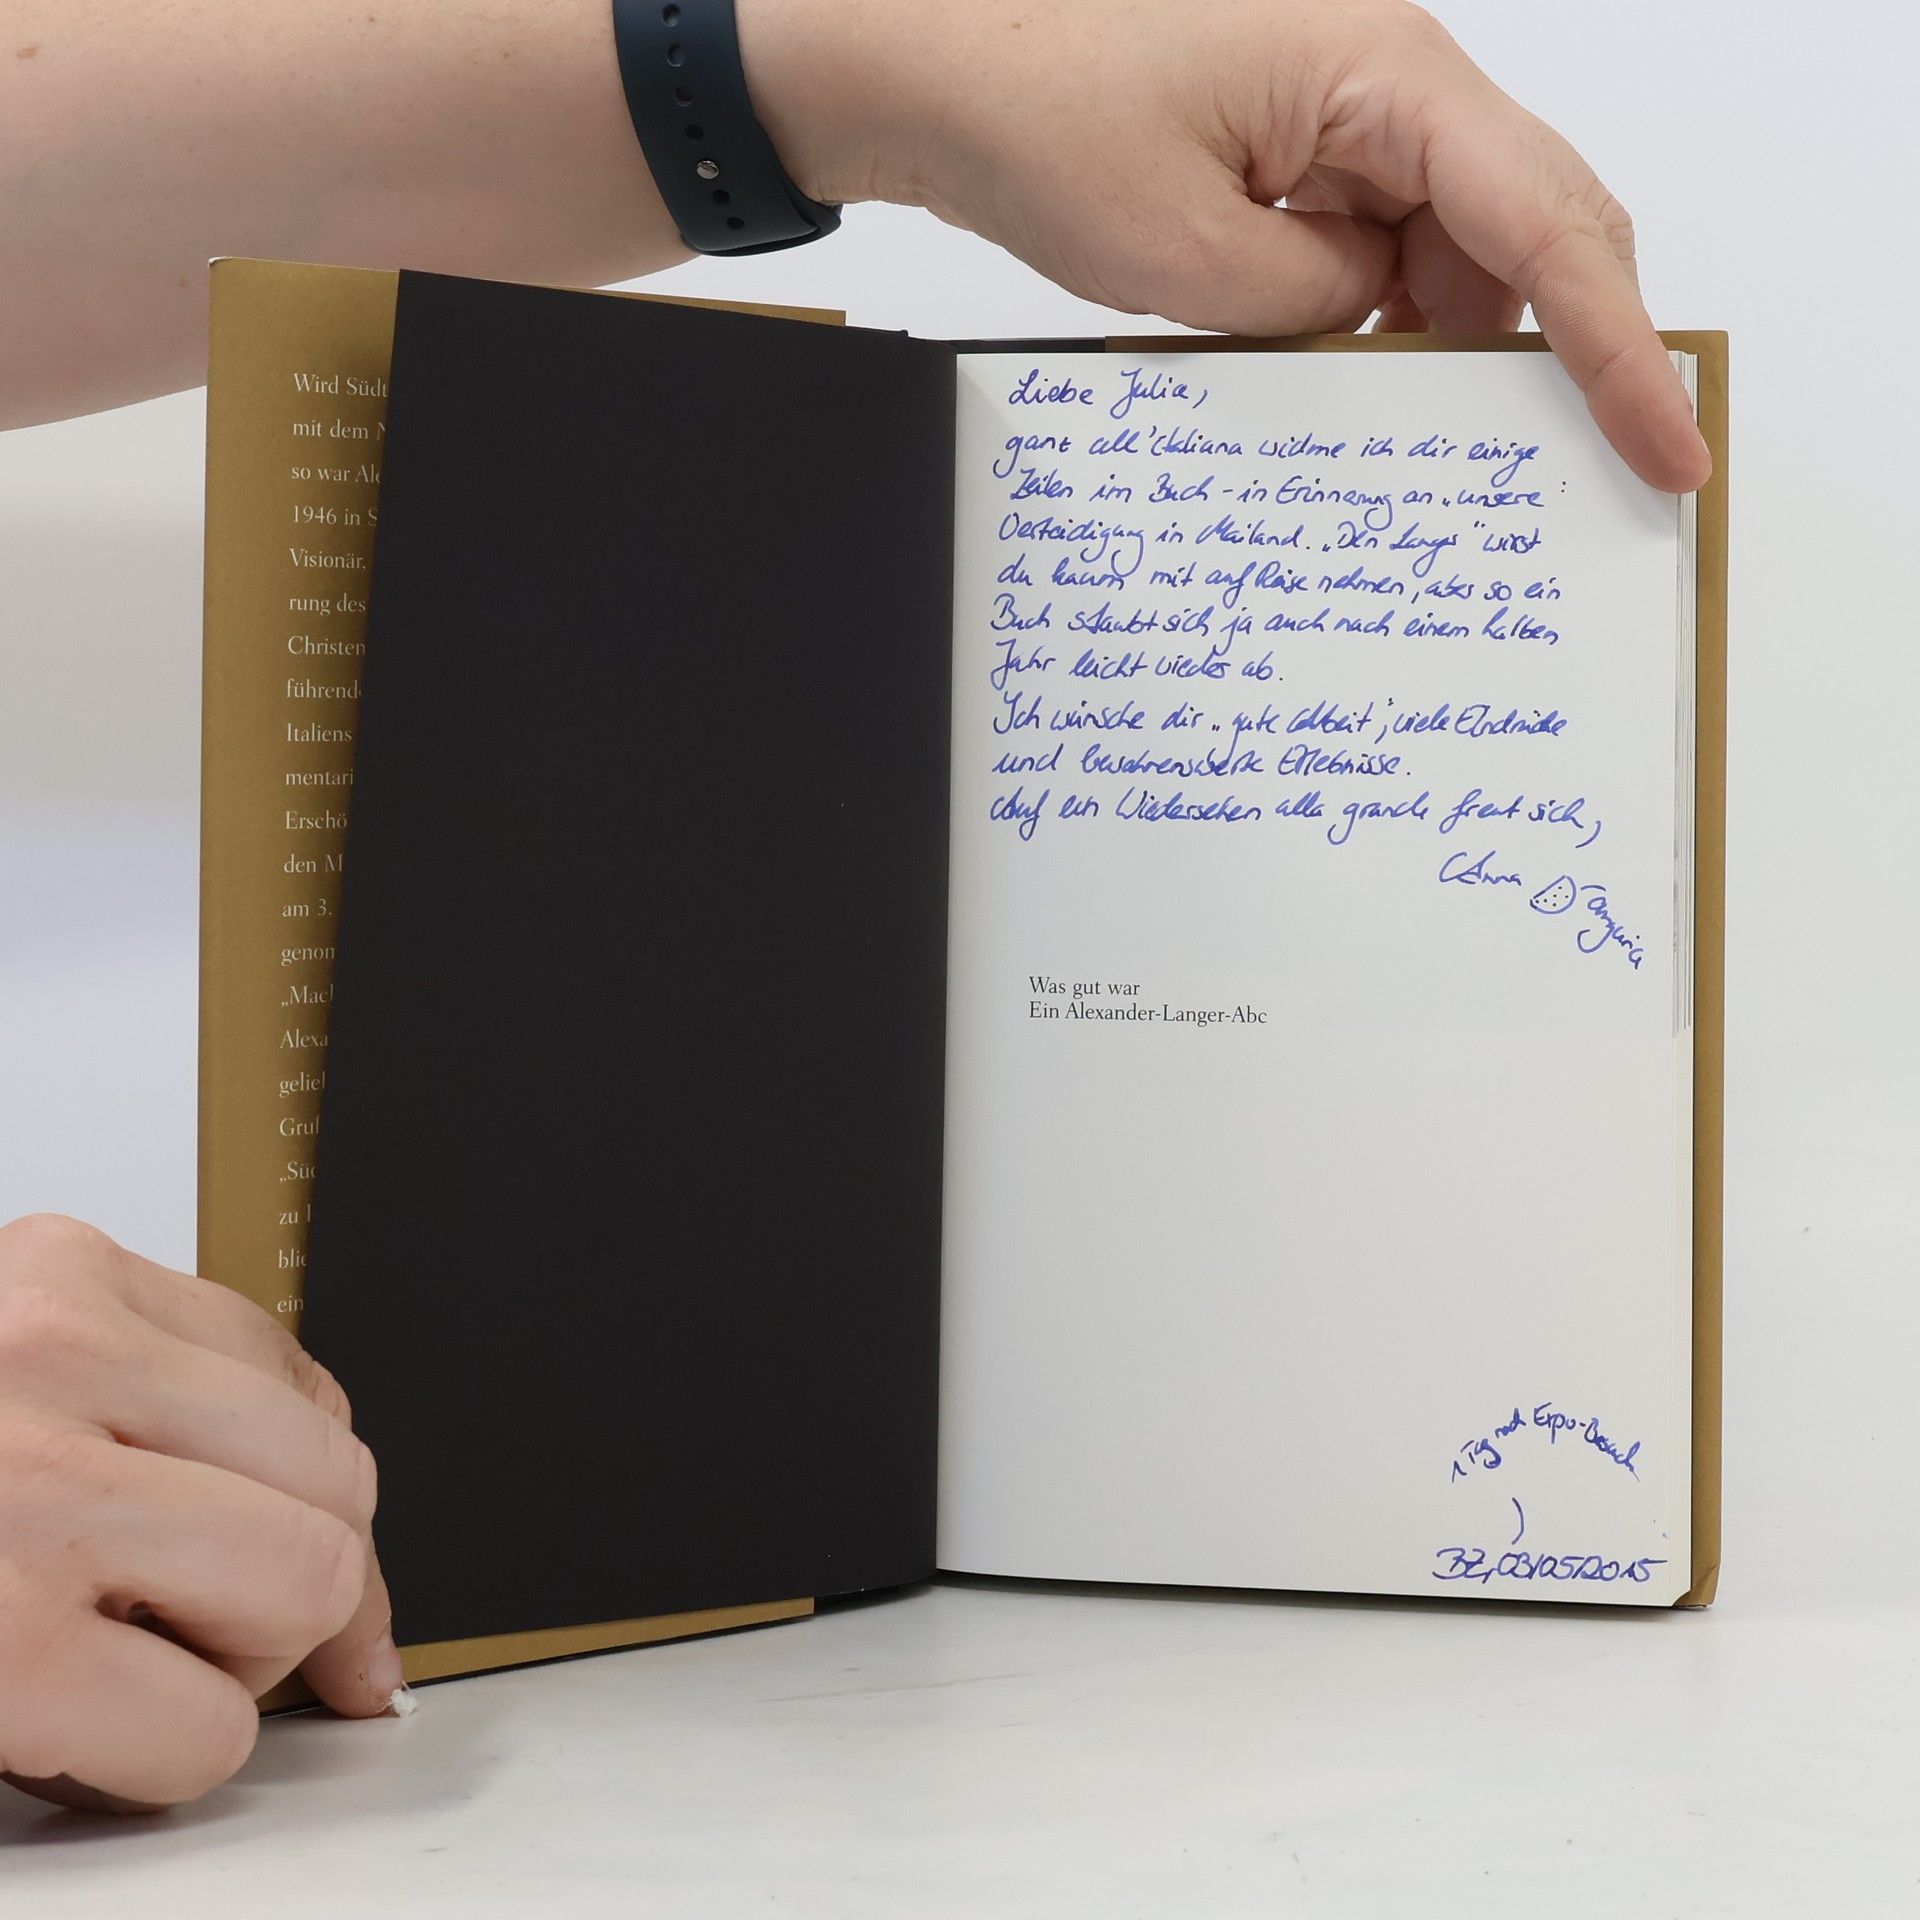 Wird Südt
mit dem N
so war Ale
1946 in S
Visionär,
rung des
Christen
führend
Italiens
mentari
Erschö
den M
am 3.
genom
„Mach
Alexa
gelieb
Gruß
„Süd
zu
blie
ein
Liebe Julia,
ganz all'italiana widme ich dir einige
Zeilen im Buch - in Erinnerung an „unsere"
Verteidigung in Mailand. „Den Langer" wirst
du kaum mit auf Reise nehmen, aber so ein
Buch staubt sich ja auch nach einem halben
Jahr leicht wieder ab.
Ich wünsche dir „gute Arbeit", viele Eindrücke
und bewahrenswerte Erlebnisse.
Auf ein Wiedersehen alla grande freut sich,
Anna Tanguria
Was gut war
Ein Alexander-Langer-Abc
1 Tag nach Expo-Besuch
BZ, 03/05/2015